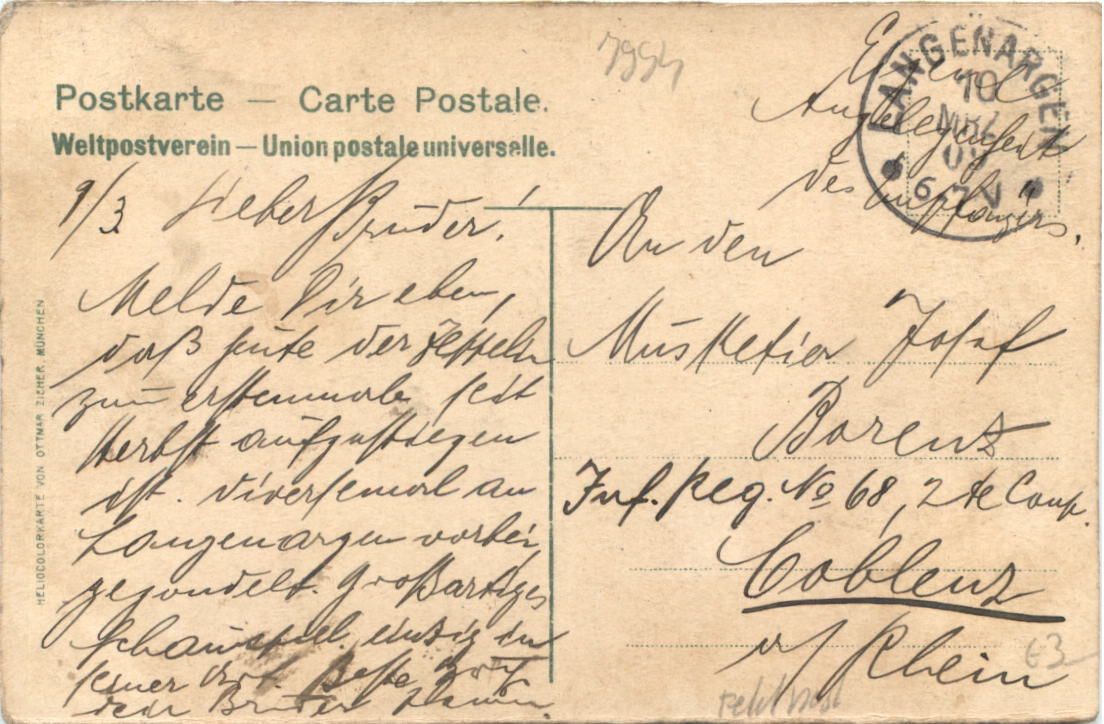 7994
Postkarte — Carte Postale.
Weltpostverein — Union postale universelle.
LANGENARGEN
10
MRZ
6-7 N
Angelegenheit
des Empfängers.
9/3 Lieber Bruder!
Melde Dir eben,
daß heute der Zeppelin
zum erstenmale seit
Herbst aufgestiegen
ist. diversemal an
Langenargen vorbei
gegondelt. Großartiges
Schauspiel, einzig in
seiner Art. Beste
dein Bruder
An den
Musketier Josef
Barenz
Inf. Reg. No 68, 2te Comp.
Coblenz
a/ Rhein
63
Feldpost
HELIOCOLORKARTE VON OTTMAR ZIEHER, MÜNCHEN